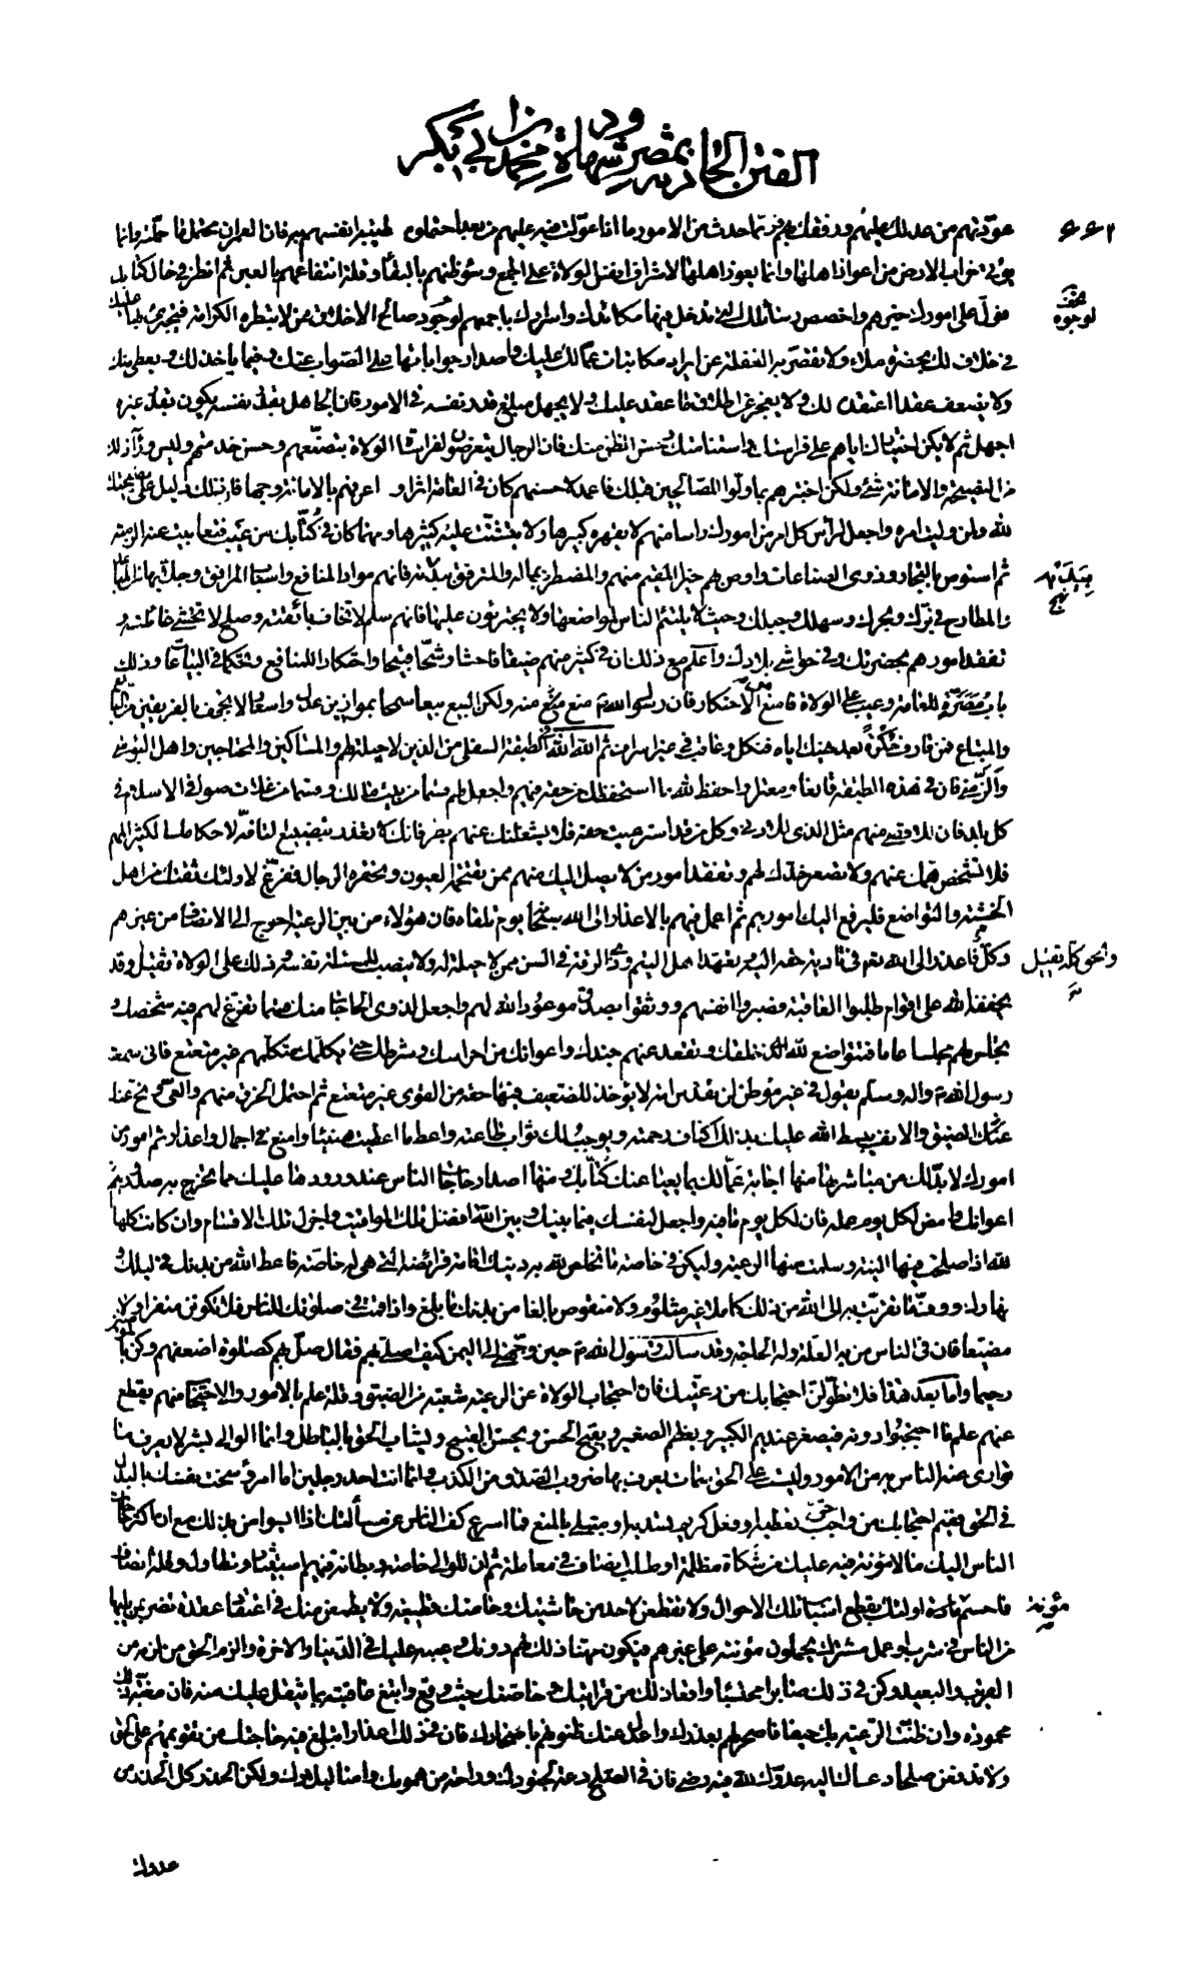 الفتن الحادثة بمصر وشهادة محمد بن أبي بكر
٦٦٢
عودتهم من عدلك عليهم ورفقك بهم فربما حدث من الامور ما اذا عولت فيه عليهم من بعد احتملوه طيبة انفسهم به فان العمران محتمل ما حملته وانما
يؤتى خراب الارض من اعواز اهلها وانما يعوز اهلها لاشراف انفس الولاة على الجمع وسوء ظنهم بالبقاء وقلة انتفاعهم بالعبر ثم انظر في حال كتابك
فول على امورك خيرهم واخصص رسائلك التي تدخل فيها مكائدك واسرارك باجمعهم لوجود صالح الاخلاق ممن لا تبطره الكرامة فيجترئ بها عليك
لوجوه
في خلاف لك بحضرة ملاء ولا تقصر به الغفلة عن ايراد مكاتبات عمالك عليك واصدار جواباتها على الصواب عنك وفيما ياخذ لك ويعطي منك
ولا يضعف عقدا اعتقده لك ولا يعجز عن اطلاق ما عقد عليك ولا يجهل مبلغ قدر نفسه في الامور فان الجاهل بقدر نفسه يكون بقدر غيره
اجهل ثم لا يكن اختيارك اياهم على فراستك واستنامتك وحسن الظن منك فان الرجال يتعرضون لفراسات الولاة بتصنعهم وحسن خدمتهم وليس وراء ذلك
من النصيحة والامانة شئ ولكن اختبرهم بما ولوا للصالحين قبلك فاعمد لاحسنهم كان في العامة اثرا و اعرفهم بالامانة وجها فان ذلك دليل على نصيحتك
لله ولمن وليت امره واجعل لرأس كل امر من امورك راسا منهم لا يقهره كبيرها ولا يتشتت عليه كثيرها ومهما كان في كتابك من عيب فتغابيت عنه الزمته
ثم استوص بالتجار وذوي الصناعات واوص بهم خيرا المقيم منهم والمضطرب بماله والمترفق ببدنه فانهم مواد المنافع واسباب المرافق وجلابها من المباعد
بيديه
والمطارح في برك وبحرك وسهلك وجبلك وحيث لا يلتئم الناس لمواضعها ولا يجترؤن عليها فانهم سلم لا تخاف بائقته وصلح لا تخشى غائلته و
تفقد امورهم بحضرتك وفي حواشي بلادك واعلم مع ذلك ان في كثير منهم ضيقا فاحشا وشحا قبيحا واحتكارا للمنافع وتحكما في البياعات وذلك
باب مضرة للعامة وعيب على الولاة فامنع من الاحتكار فان رسول الله منع منه وليكن البيع بيعا سمحا بموازين عدل واسعار لا تجحف بالفريقين من البايع
والمبتاع فمن قارف حكرة بعد نهيك اياه فنكل وعاقب في غير اسراف ثم الله الله في الطبقة السفلى من الذين لا حيلة لهم والمساكين والمحتاجين واهل البؤسى
والزمنى فان في هذه الطبقة قانعا ومعترا واحفظ لله ما استحفظك من حقه فيهم واجعل لهم قسما من بيت مالك وقسما من غلات صوافي الاسلام في
كل بلد فان للاقصى منهم مثل الذي للادنى وكل قد استرعيت حقه فلا يشغلنك عنهم بطر فانك لا تعذر بتضييع التافه لاحكامك الكثير المهم
فلا تشخص همك عنهم ولا تصعر خدك لهم وتفقد امور من لا يصل اليك منهم ممن تقتحمه العيون وتحقره الرجال ففرغ لاولئك ثقتك من اهل
الخشية والتواضع فليرفع اليك امورهم ثم اعمل فيهم بالاعذار الى الله سبحانه يوم تلقاه فان هؤلاء من بين الرعية احوج الى الانصاف من غيرهم
وكل فاعذر الى الله تعالى في تادية حقه اليه وتعهد اهل اليتم وذوي الرقة في السن ممن لا حيلة له ولا ينصب للمسئلة نفسه وذلك على الولاة ثقيل وقد
والحق كله ثقيل
يخففه الله على اقوام طلبوا العاقبة فصبروا انفسهم ووثقوا بصدق موعود الله لهم واجعل لذوي الحاجات منك قسما تفرغ لهم فيه شخصك و
تجلس لهم مجلسا عاما فتتواضع لله الذي خلقك وتقعد عنهم جندك واعوانك من احراسك وشرطك حتى يكلمك متكلمهم غير متتعتع فاني سمعت
رسول الله واله وسلم يقول في غير موطن لن تقدس امة لا يؤخذ للضعيف فيها حقه من القوي غير متتعتع ثم احتمل الخرق منهم والعي ونح عنك
عنك الضيق والانف يبسط الله عليك بذلك اكناف رحمته ويوجب لك ثواب طاعته واعط ما اعطيت هنيئا وامنع في اجمال واعذار ثم امور من
امورك لا بد لك من مباشرتها منها اجابة عمالك بما يعيا عنك كتابك ومنها اصدار حاجات الناس عند ورودها عليك مما تحرج به صدور
اعوانك وامض لكل يوم عمله فان لكل يوم ما فيه واجعل لنفسك فيما بينك وبين الله افضل تلك المواقيت واجزل تلك الاقسام وان كانت كلها
لله اذا صلحت فيها النية وسلمت منها الرعية وليكن في خاصة ما تخلص لله به دينك اقامة فرائضه التي هي له خاصة فاعط الله من بدنك في ليلك و
نهارك ووف ما تقربت به الى الله من ذلك كاملا غير مثلوم ولا منقوص بالغا من بدنك ما بلغ واذا قمت في صلوتك للناس فلا تكونن منفرا ولا
مضيعا فان في الناس من به العلة وله الحاجة وقد سالت رسول الله حين وجهني الى اليمن كيف اصلي بهم فقال صل بهم كصلوة اضعفهم وكن بالمؤمنين
رحيما واما بعد هذا فلا تطولن احتجابك من رعيتك فان احتجاب الولاة عن الرعية شعبة من الضيق وقلة علم بالامور والاحتجاب منهم يقطع
عنهم علم ما احتجبوا دونه فيصغر عندهم الكبير ويعظم الصغير ويقبح الحسن ويحسن القبيح ويشاب الحق بالباطل وانما الوالي بشر لا يعرف ما
توارى عنه الناس به من الامور وليست على الحق سمات يعرف بها ضروب الصدق من الكذب وانما انت احد رجلين اما امرؤ سخت نفسك بالبذل
في الحق ففيم احتجابك من واجب حق تعطيه او فعل كريم تسديه او مبتلى بالمنع فما اسرع كف الناس عن مسألتك اذا ايسوا من بذلك مع ان اكثر حاجات
الناس اليك ما لا مؤنة فيه عليك من شكاة مظلمة او طلب انصاف في معاملة ثم ان للوالي خاصة وبطانة فيهم استيثار وتطاول وقلة انصاف
فاحسم مادة اولئك بقطع اسباب تلك الاحوال ولا تقطعن لاحد من حاشيتك وخاصتك قطيعة ولا يطمعن منك في اعتقاد عقدة تضر بمن يليها
مؤونة
من الناس في شرب او عمل مشترك يحملون مؤنته على غيرهم فيكون مهنا ذلك لهم دونك وعيبه عليك في الدنيا والاخرة والزم الحق من لزمه من
القريب والبعيد وكن في ذلك صابرا محتسبا واقعا ذلك من قرابتك وخاصتك حيث وقع وابتغ عاقبته بما يثقل عليك منه فان مغبة ذلك
محمودة وان ظنت الرعية بك حيفا فاصحر لهم بعذرك واعدل عنك ظنونهم باصحارك فان في ذلك اعذارا تبلغ فيه حاجتك من تقويمهم على الحق
ولا تدفعن صلحا دعاك اليه عدوك لله فيه رضى فان في الصلح دعة لجنودك وراحة من همومك وامنا لبلادك ولكن الحذر كل الحذر من
عدوك